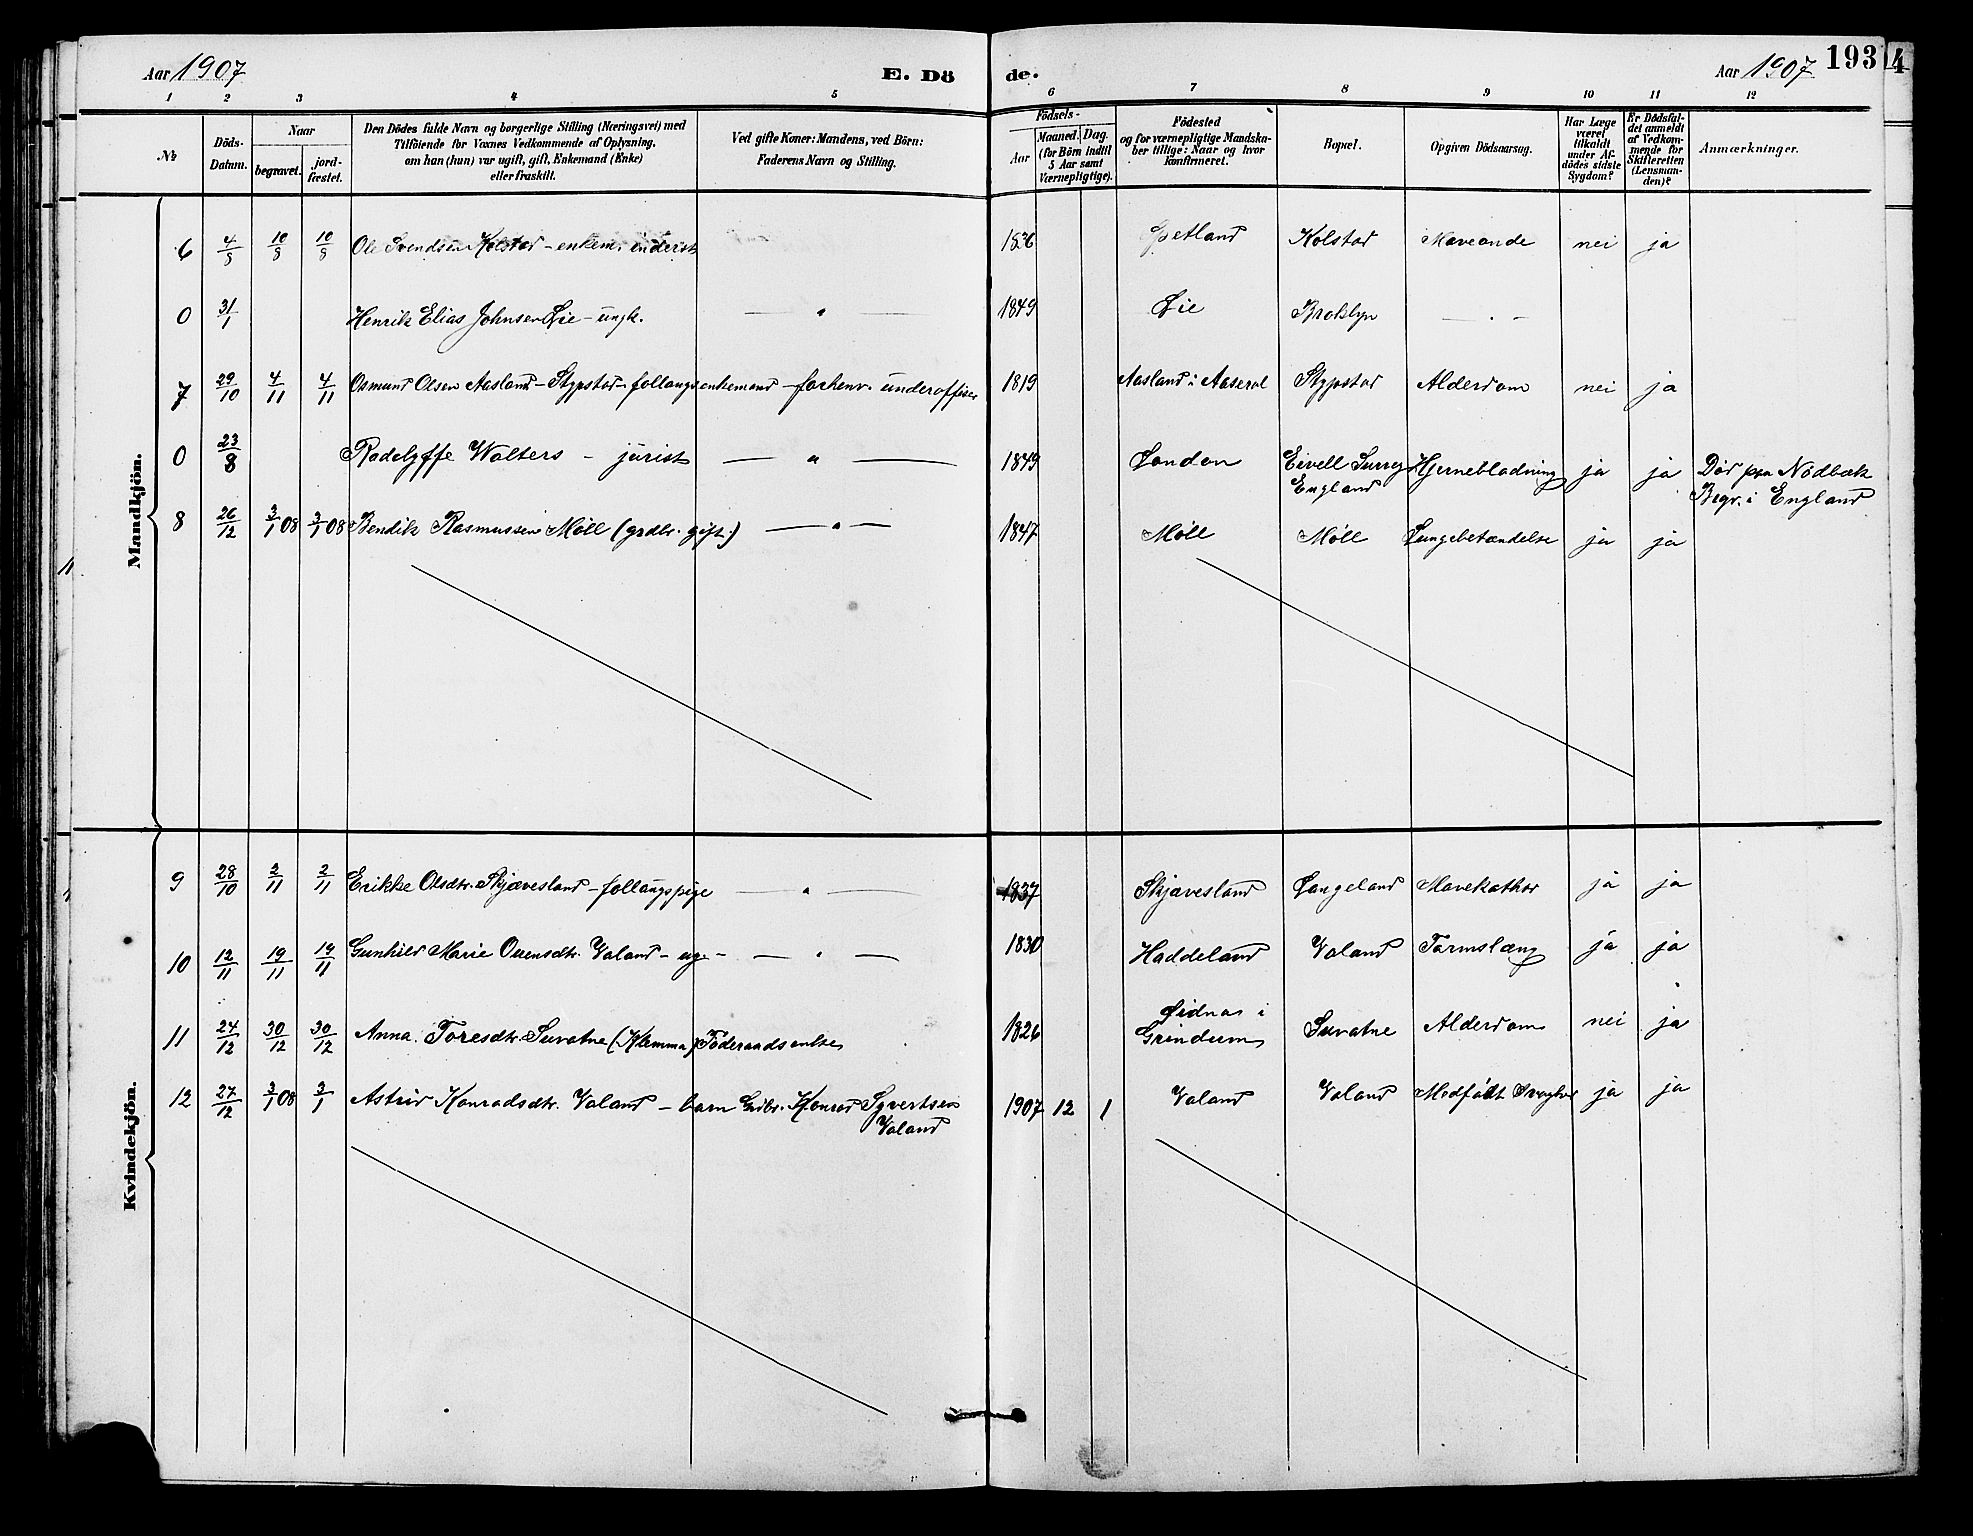 Aar 1907
E. Dö
de.
Aar 1907 193
4
1 2 3 4 5 6 7 8 9 10 11 12
№
Döds-Datum.
Naar
begravet.
jord-fæstet.
Den Dödes fulde Navn og borgerlige Stilling (Næringsvei) med
Tilföiende for Voxnes Vedkommende af Oplysning,
om han (hun) var ugift, gift, Enkemand (Enke)
eller fraskilt.
Ved gifte Koner: Mandens, ved Börn:
Faderens Navn og Stilling.
Födsels-
Aar
Maaned. Dag.
(for Börn indtil
5 Aar samt
Værnepligtige).
Födested
og for værnepligtige Mandska-
ber tillige: Naar og hvor
konfirmeret.
Bopæl.
Opgiven Dödsaarsag.
Har Læge
været
tilkaldt
under Af-
dödes sidste
Sygdom?
Er Dödsfal-
det anmeldt
af Vedkom-
mende for
Skifteretten
(Lensman-
den)?
Anmærkninger.
Mandkjön.
6 4/8 10/8 10/8 Ole Svendsen Kolstad - enkem. inderst 1836 Spetland Kolstad Maveonde nei ja
0 31/1 Henrik Elias Johnsen Øie - ungk. — " — 1849 Øie Broklyn — " —
7 29/10 4/11 4/11 Osmund Olsen Aasland - Stypstad - follaugsenkemand - forhenv. underofficer 1819 Aasland i Aaseral Stypstad Alderdom nei ja
0 23/8 Radclyffe Walters - jurist — " — 1849 London Eivell Surrey Hjerneblødning ja ja Død paa Nødbæk
England Begr. i England
8 26/12 3/1 08 3/1 08 Bendik Rasmussen Møll (grdbr. gift.) — " — 1847 Møll Møll Lungebetændelse ja ja
Kvindekjön.
9 28/10 2/11 2/11 Erikke Olsdtr. Skjævesland - follaugspige — " — 1837 Skjævesland Langeland Mavekathar ja ja
10 12/11 19/11 19/11 Gunhild Marie Ouensdtr. Valand - ug. - — " — 1830 Haddeland Valand Tarmslæng ja ja
11 24/12 30/12 30/12 Anna Toresdtr. Suvatne (Klemma) Föderaadsenke 1826 Lidnas i
Grindum Suvatne Alderdom nei ja
12 27/12 3/1 08 3/1 Astrid Konradsdtr. Valand - barn Grdbr. Konrad Syvertsen
Valand 1907 12 1 Valand Valand Medfødt Svaghed ja ja